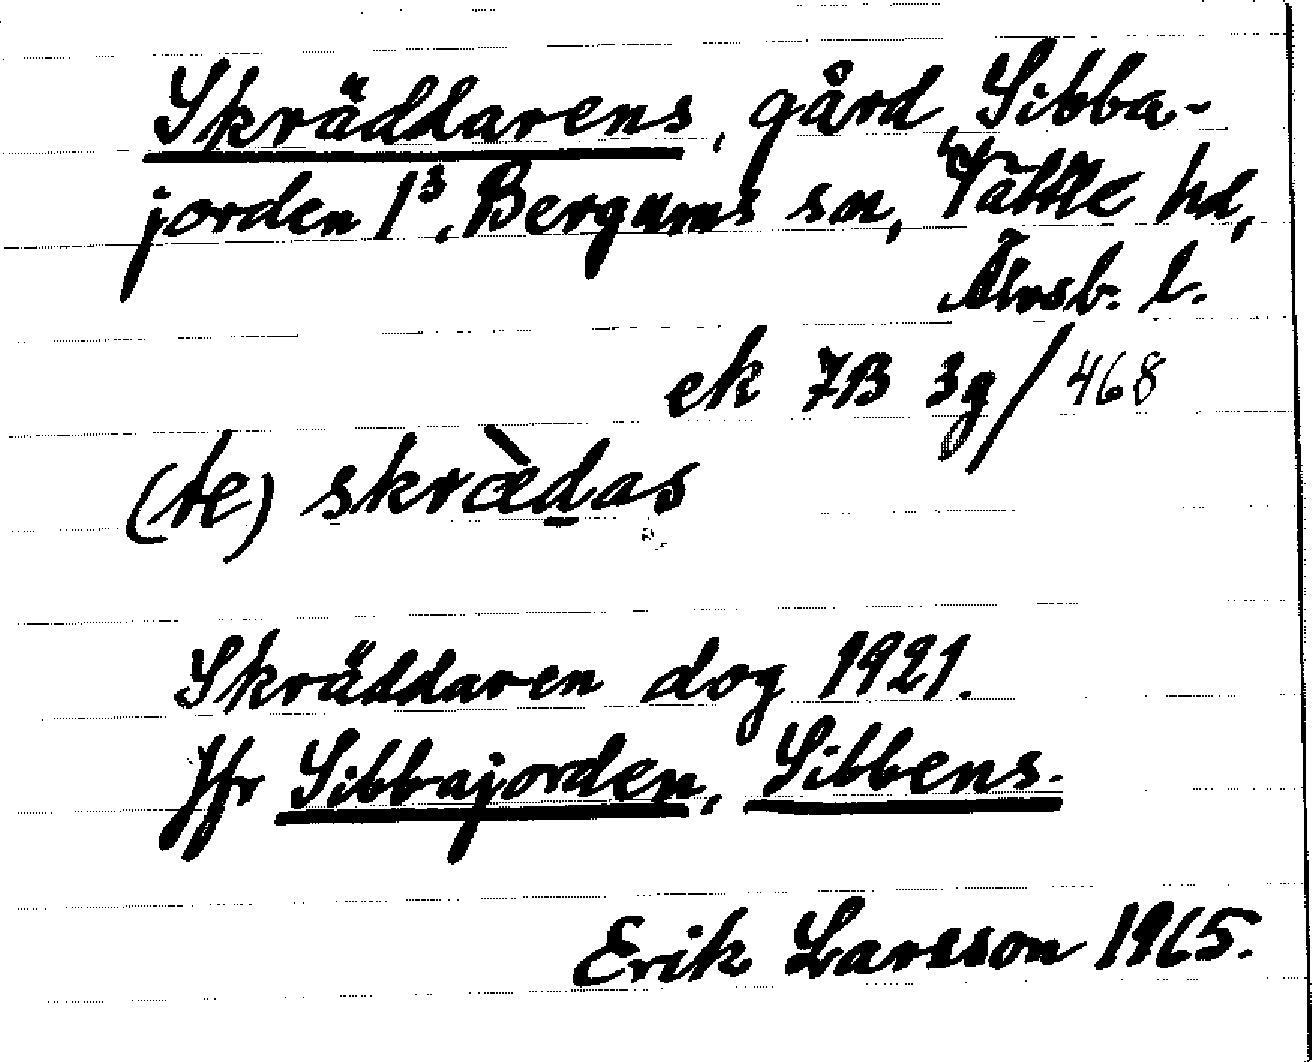 Skräddarens, gård, Sibba-
jorden 1³, Bergums sn, Vättle hd,
Älvsb. l.
ek 7B 3g/468
(te) skræ̀das
Skräddaren dog 1921.
Jfr Sibbajorden, Sibbens.
Erik Larsson 1965.